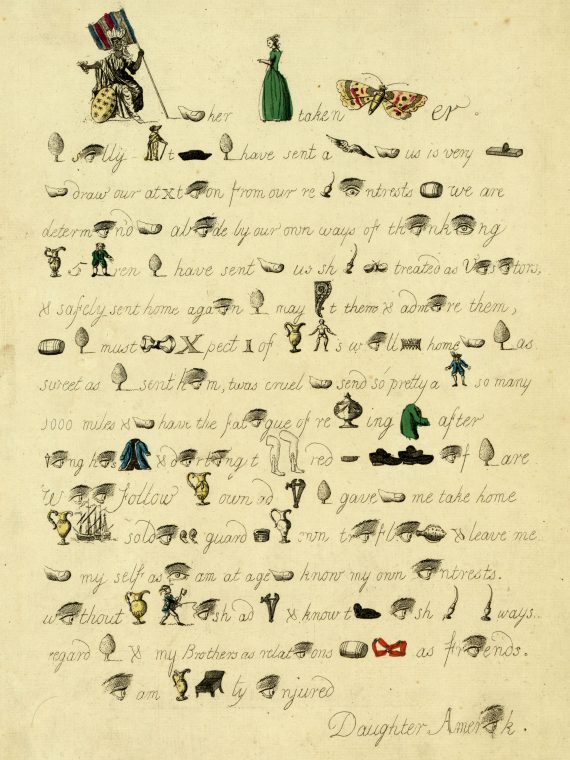 her taken er.
s lly t have sent a us is very
draw our at x t on from our re ntrests we are
determ n'd al de by our own ways of th nk ng
5 ren have sent us sh treated as V s tors,
& safely sent home aga n may t them & adm re them,
must X pect 1 of s w ll home as
sweet as sent h m, twas cruel send so pretty a so many
1000 miles & have the fat gue of re ing after
ng h s & d rt ng t red f are
W Follow own ad gave me take home
sold guard own tr fl & leave me
my self as am at age know my own ntrests.
w thout sh ad & know t sh ways..
regard & my Brothers as relat ons as fr ends.
am ty njured
Daughter Amer k.